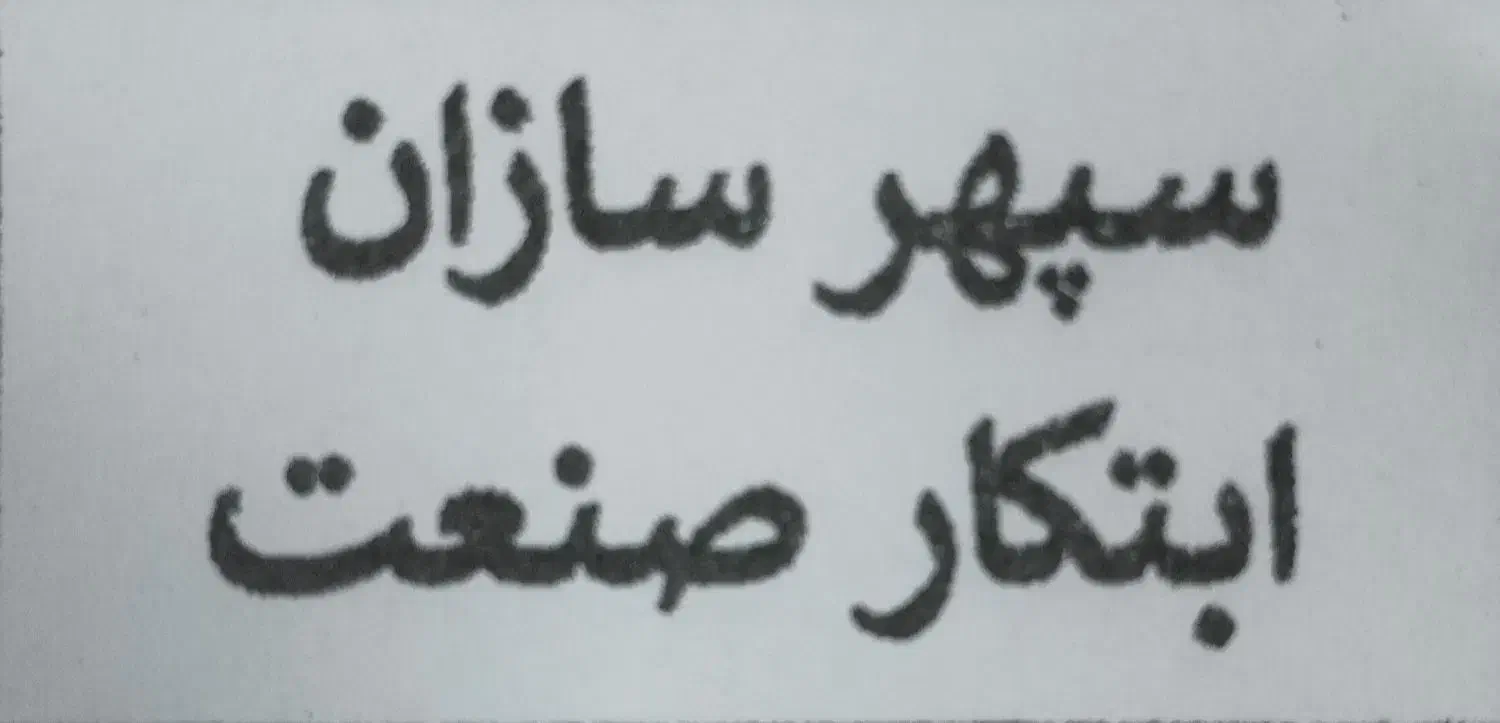 سپهر سازان
ابتکار صنعت